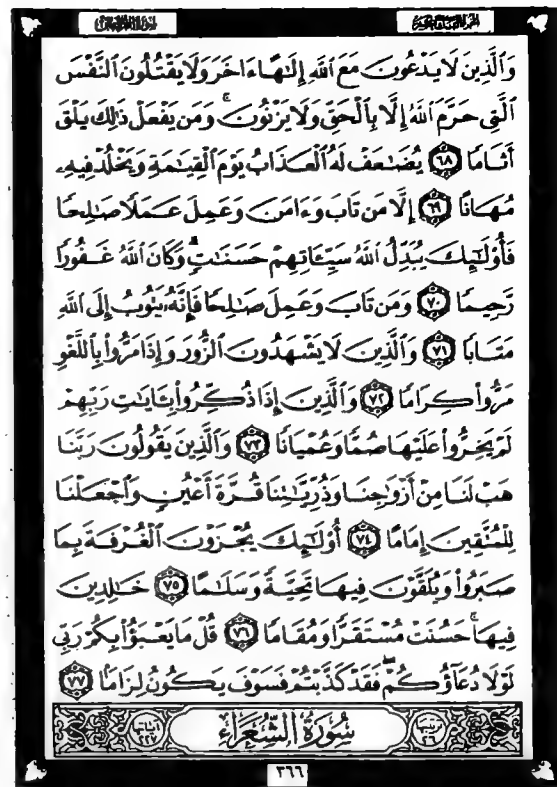 وَالَّذِينَ لَا يَدْعُونَ مَعَ اللَّهِ إِلَٰهًا ءَاخَرَ وَلَا يَقْتُلُونَ النَّفْسَ
الَّتِي حَرَّمَ اللَّهُ إِلَّا بِالْحَقِّ وَلَا يَزْنُونَ ۚ وَمَن يَفْعَلْ ذَٰلِكَ يَلْقَ
أَثَامًا ٦٨ يُضَٰعَفْ لَهُ الْعَذَابُ يَوْمَ الْقِيَٰمَةِ وَيَخْلُدْ فِيهِۦ
مُهَانًا ٦٩ إِلَّا مَن تَابَ وَءَامَنَ وَعَمِلَ عَمَلًا صَٰلِحًا
فَأُو۟لَٰٓئِكَ يُبَدِّلُ اللَّهُ سَيِّـَٔاتِهِمْ حَسَنَٰتٍ ۗ وَكَانَ اللَّهُ غَفُورًا
رَّحِيمًا ٧٠ وَمَن تَابَ وَعَمِلَ صَٰلِحًا فَإِنَّهُۥ يَتُوبُ إِلَى اللَّهِ
مَتَابًا ٧١ وَالَّذِينَ لَا يَشْهَدُونَ الزُّورَ وَإِذَا مَرُّوا۟ بِاللَّغْوِ
مَرُّوا۟ كِرَامًا ٧٢ وَالَّذِينَ إِذَا ذُكِّرُوا۟ بِـَٔايَٰتِ رَبِّهِمْ
لَمْ يَخِرُّوا۟ عَلَيْهَا صُمًّا وَعُمْيَانًا ٧٣ وَالَّذِينَ يَقُولُونَ رَبَّنَا
هَبْ لَنَا مِنْ أَزْوَٰجِنَا وَذُرِّيَّٰتِنَا قُرَّةَ أَعْيُنٍ وَاجْعَلْنَا
لِلْمُتَّقِينَ إِمَامًا ٧٤ أُو۟لَٰٓئِكَ يُجْزَوْنَ الْغُرْفَةَ بِمَا
صَبَرُوا۟ وَيُلَقَّوْنَ فِيهَا تَحِيَّةً وَسَلَٰمًا ٧٥ خَٰلِدِينَ
فِيهَا ۚ حَسُنَتْ مُسْتَقَرًّا وَمُقَامًا ٧٦ قُلْ مَا يَعْبَؤُا۟ بِكُمْ رَبِّي
لَوْلَا دُعَآؤُكُمْ ۖ فَقَدْ كَذَّبْتُمْ فَسَوْفَ يَكُونُ لِزَامًا ٧٧
ترتيبها ٢٦ سُورَةُ الشُّعَرَاءِ آياتها ٢٢٧
٣٦٦